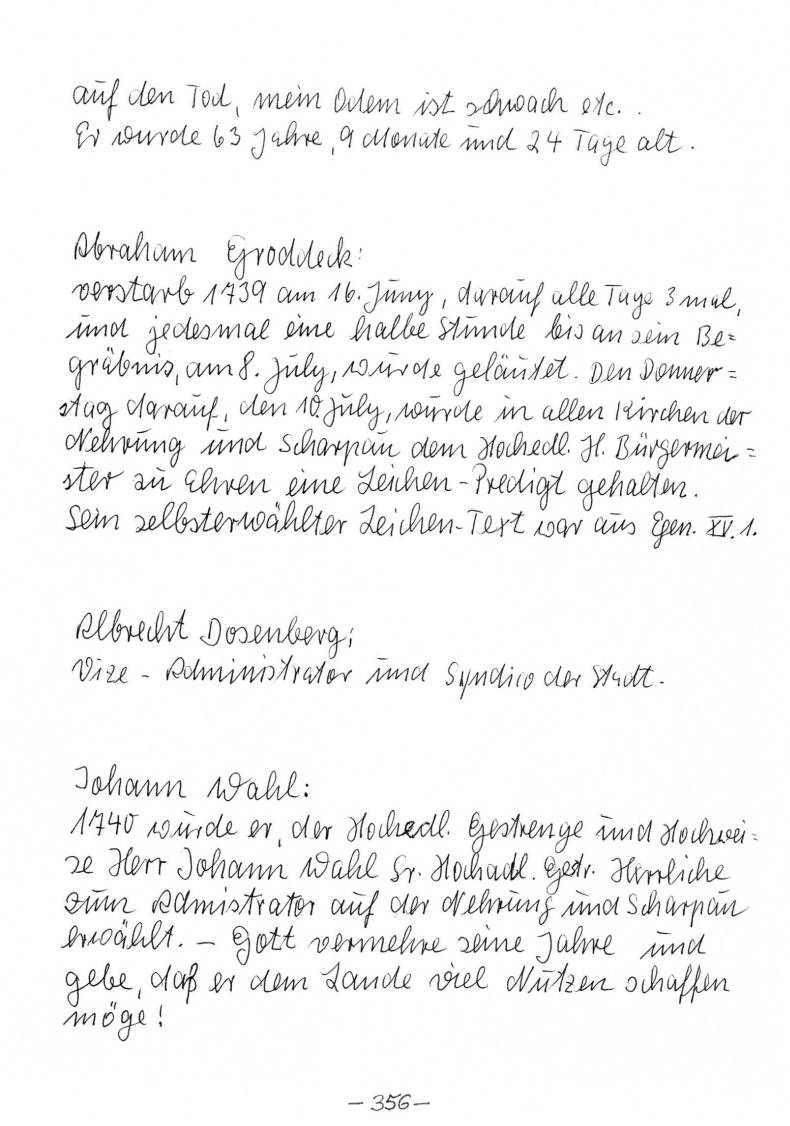 auf den Tod, mein Odem ist schwach etc. .
Er wurde 63 Jahre, 9 Monate und 24 Tage alt.
Abraham Groddeck:
verstarb 1739 am 16. Juny, darauf alle Tage 3 mal,
und jedesmal eine halbe Stunde bis an sein Be=
gräbnis, am 8. July, wurde geläutet. Den Donner=
stag darauf, den 10. July, wurde in allen Kirchen der
Nehrung und Scharpau dem Hochedl. H. Bürgermei=
ster zu Ehren eine Leichen-Predigt gehalten.
Sein selbsterwählter Leichen-Text war aus Gen. XV. 1.
Albrecht Dosenberg;
Vize - Administrator und Syndico der Stadt.
Johann Wahl:
1740 wurde er, der Hochedl. Gestrenge und Hochwei=
se Herr Johann Wahl Sr. Hochadl. Gestr. Herrliche
zum Admistrator auf der Nehrung und Scharpau
erwählt. – Gott vermehre seine Jahre und
gebe, daß er dem Lande viel Nutzen schaffen
möge!
– 356 –